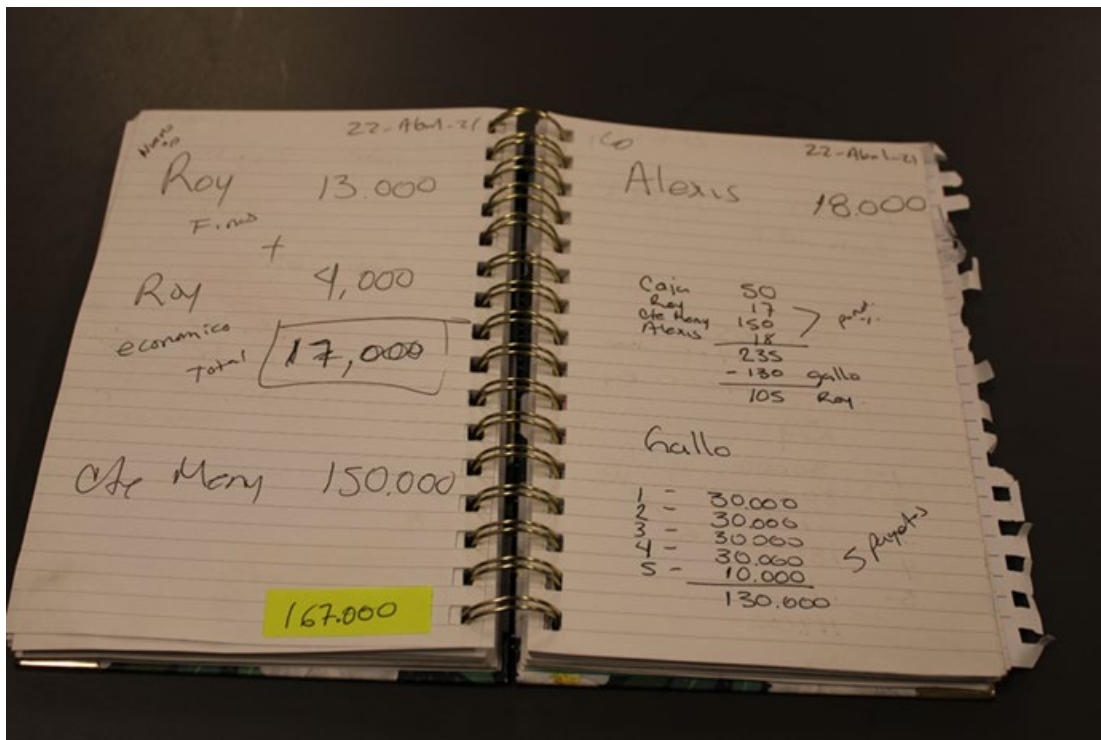 22-Abril-21
Roy 13.000
+
Roy 4,000
economico
Total 17,000
Cte Mony 150.000
167.000
22-Abril-21
Alexis 18.000
Caja 50
Roy 17
Cte Mony 150
Alexis 18
235
-130 gallo
105 Roy
Gallo
1 - 30.000
2 - 30.000
3 - 30.000
4 - 30.000
5 - 10.000
130.000